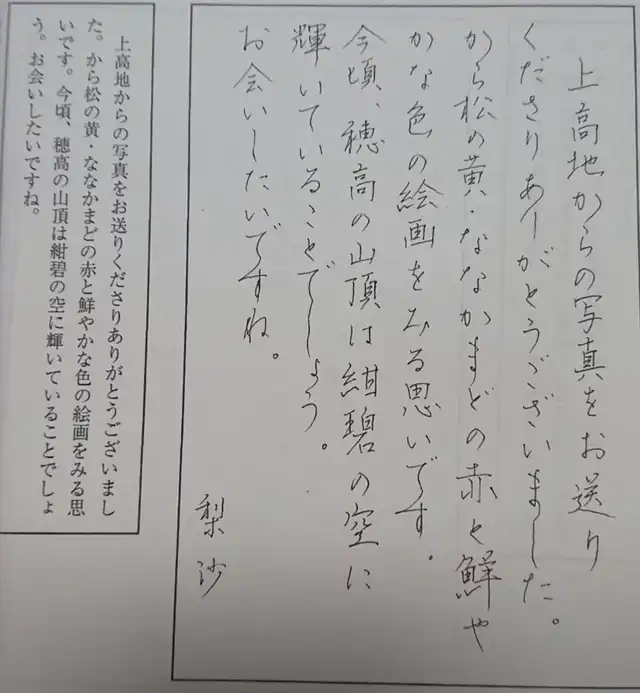 上高地からの写真をお送り
くださりありがとうございました。
から松の黄・ななかまどの赤と鮮や
かな色の絵画をみる思いです。
今頃、穂高の山頂は紺碧の空に
輝いていることでしょう。
お会いしたいですね。
梨沙
上高地からの写真をお送りくださりありがとうございまし
た。から松の黄・ななかまどの赤と鮮やかな色の絵画をみる思
いです。今頃、穂高の山頂は紺碧の空に輝いていることでしょ
う。お会いしたいですね。